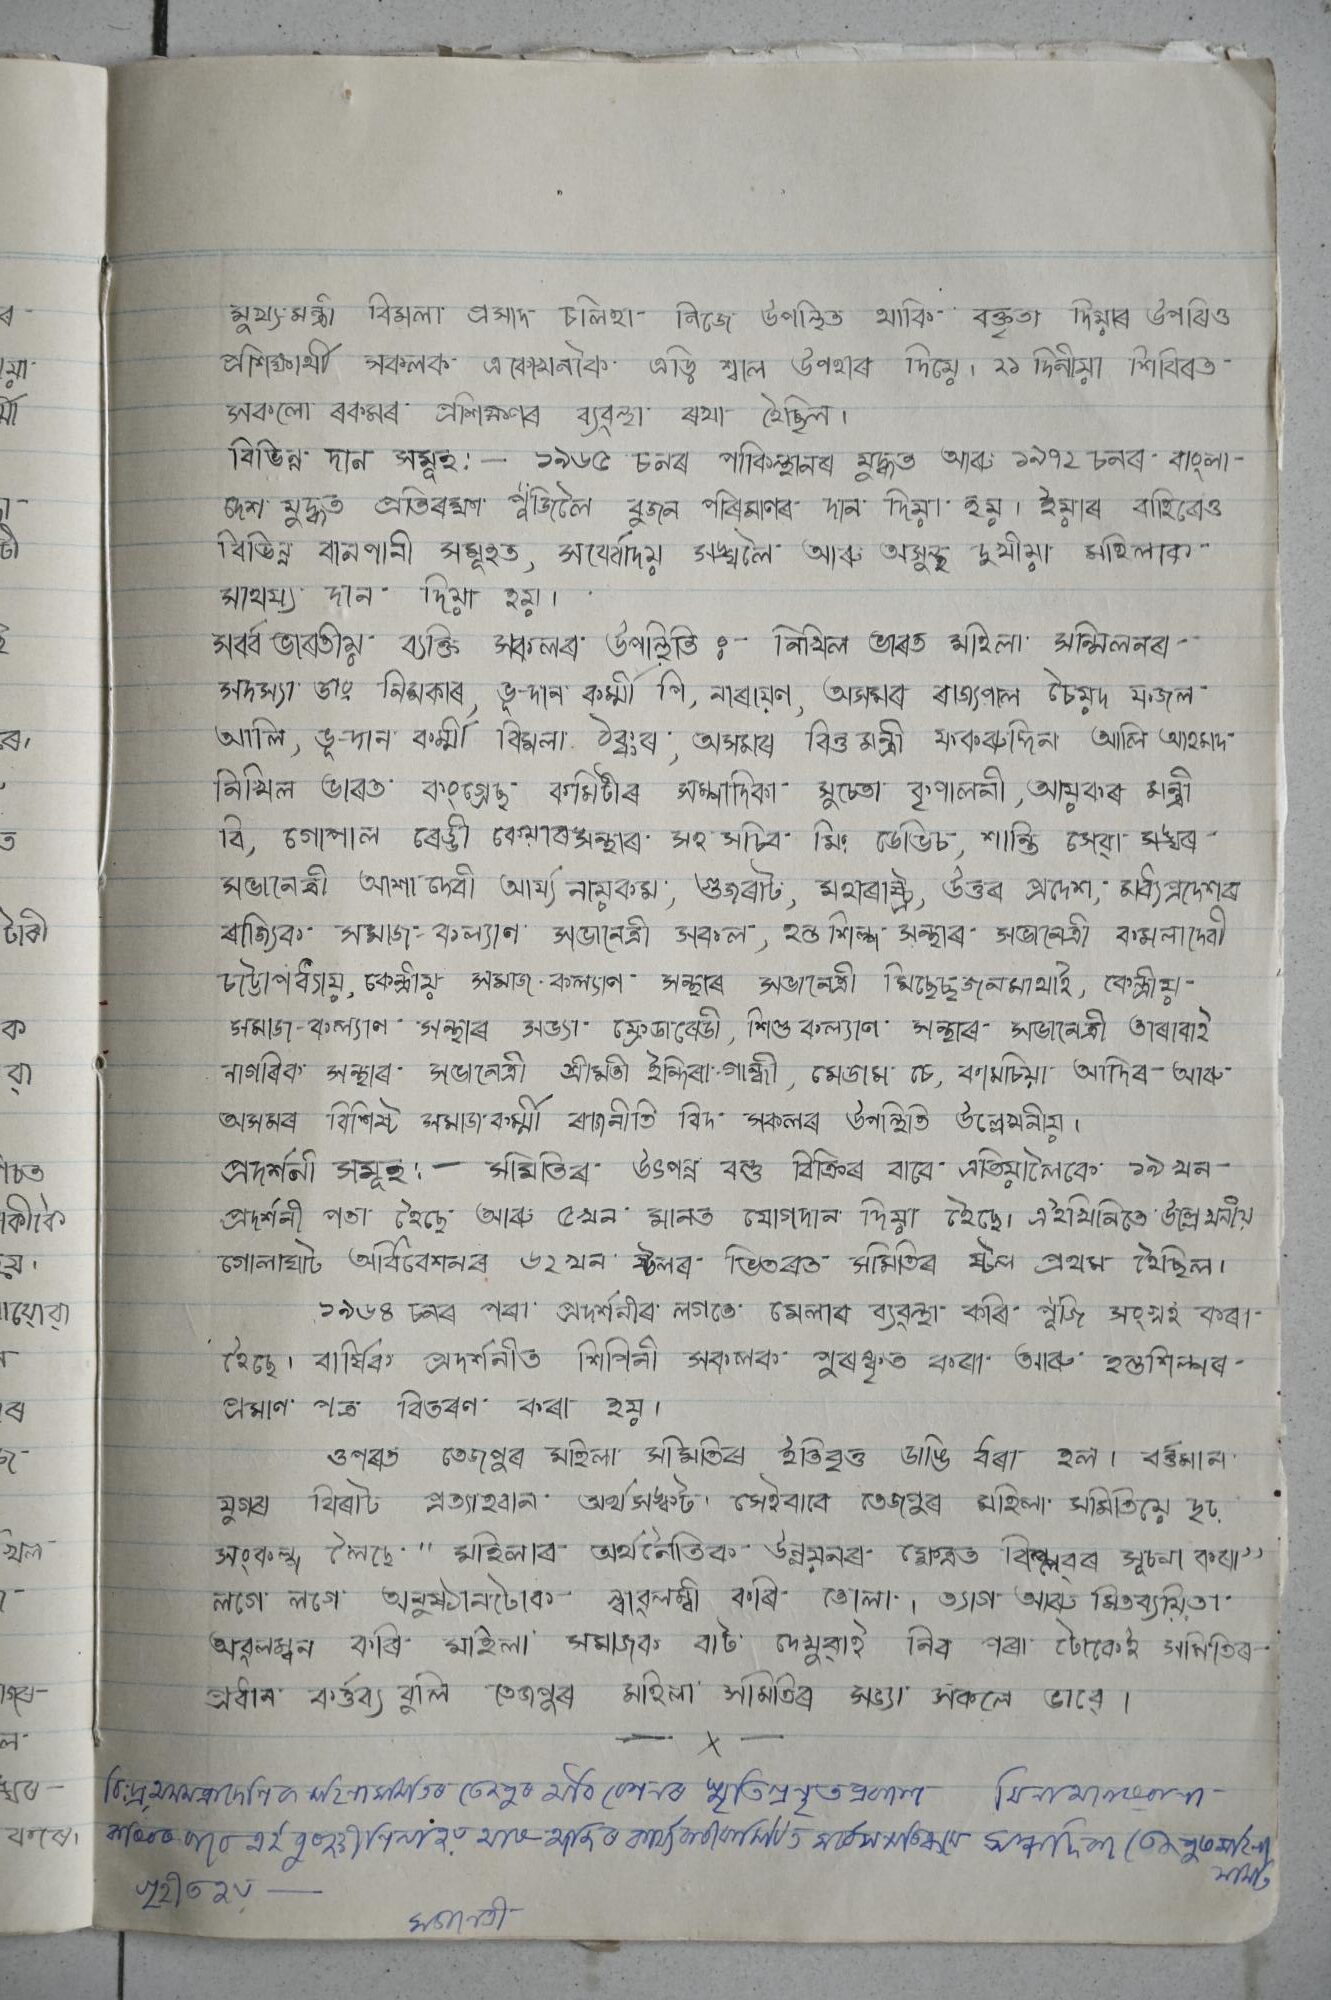 মুখ্যমন্ত্ৰী বিমলা প্ৰসাদ চলিহা নিজে উপস্থিত থাকি বক্তৃতা দিয়াৰ উপৰিও
প্ৰশিক্ষাৰ্থী সকলক একোখনকৈ এড়ি শ্বাল উপহাৰ দিয়ে। ২১ দিনীয়া শিবিৰত
সকলো ৰকমৰ প্ৰশিক্ষণৰ ব্যৱস্থা ৰখা হৈছিল।
বিভিন্ন দান সমূহ:— ১৯৬৫ চনৰ পাকিস্থানৰ যুদ্ধত আৰু ১৯৭২ চনৰ বাংলা-
দেশ যুদ্ধত প্ৰতিৰক্ষণ পুঁজিলৈ বুজন পৰিমাণৰ দান দিয়া হয়। ইয়াৰ বাহিৰেও
বিভিন্ন বানপানী সমূহত, সৰ্বোদয় সঙ্ঘলৈ আৰু অসুস্থ দুখীয়া মহিলাক
সাহায্য দান দিয়া হয়।
সৰ্ব্ব ভাৰতীয় ব্যক্তি সকলৰ উপস্থিতি ঃ- নিখিল ভাৰত মহিলা সন্মিলনৰ
সদস্যা ডাঃ নিম্বকাৰ, ভূ-দান কৰ্ম্মী পি, নাৰায়ণ, অসমৰ ৰাজ্যপাল চৈয়দ ফজল
আলি, ভূ-দান কৰ্ম্মী বিমলা ঠক্কৰ, অসমৰ বিত্ত মন্ত্ৰী ফকৰুদ্দিন আলি আহমদ
নিখিল ভাৰত কংগ্ৰেছ কমিটীৰ সম্পাদিকা সুচেতা কৃপালনী, আয়কৰ মন্ত্ৰী
বি, গোপাল ৰেড্ডী কেয়াৰ সন্থাৰ সহ সচিব মিঃ ডেভিচ, শান্তি সেৱা সঙ্ঘৰ
সভানেত্ৰী আশাদেবী আৰ্য্যনায়কম, গুজৰাট, মহাৰাষ্ট্ৰ, উত্তৰ প্ৰদেশ, মধ্যপ্ৰদেশৰ
ৰাজ্যিক সমাজ-কল্যাণ সভানেত্ৰী সকল, হস্ত শিল্প সন্থাৰ সভানেত্ৰী কমলাদেবী
চট্টোপধ্যায়, কেন্দ্ৰীয় সমাজ-কল্যাণ সন্থাৰ সভানেত্ৰী মিছেছ্ জনমাথাই, কেন্দ্ৰীয়
সমাজ-কল্যাণ সন্থাৰ সভ্যা ফ্ৰেডাবেডী, শিশু কল্যাণ সন্থাৰ সভানেত্ৰী তাৰাবাই
নাগৰিক সন্থাৰ সভানেত্ৰী শ্ৰীমতী ইন্দিৰা গান্ধী, মেডাম চে, কামচিয়া আদিৰ আৰু
অসমৰ বিশিষ্ট সমাজকৰ্ম্মী ৰাজনীতি বিদ সকলৰ উপস্থিতি উল্লেখনীয়।
প্ৰদৰ্শনী সমূহ:— সমিতিৰ উৎপন্ন বস্তু বিক্ৰিৰ বাবে এতিয়ালৈকে ১৯ খন
প্ৰদৰ্শনী পতা হৈছে আৰু ৫খন মানত যোগদান দিয়া হৈছে। এইখিনিতে উল্লেখনীয়
গোলাঘাট অধিবেশনৰ ৬২ খন ষ্টলৰ ভিতৰত সমিতিৰ ষ্টল প্ৰথম হৈছিল।
১৯৬৪ চনৰ পৰা প্ৰদৰ্শনীৰ লগতে মেলাৰ ব্যৱস্থা কৰি পুঁজি সংগ্ৰহ কৰা
হৈছে। বাৰ্ষিক প্ৰদৰ্শনীত শিপিনী সকলক পুৰস্কৃত কৰা আৰু হস্তশিল্পৰ
প্ৰমাণ পত্ৰ বিতৰণ কৰা হয়।
ওপৰত তেজপুৰ মহিলা সমিতিৰ ইতিবৃত্ত ডাঙি ধৰা হল। বৰ্ত্তমান
যুগৰ বিৰাট প্ৰত্যাহবান অৰ্থসঙ্কট। সেইবাবে তেজপুৰ মহিলা সমিতিয়ে দৃঢ়
সংকল্প লৈছে "মহিলাৰ অৰ্থনৈতিক উন্নয়নৰ ক্ষেত্ৰত বিপ্লৱৰ সূচনা কৰা"
লগে লগে অনুষ্ঠানটোক স্বাৱলম্বী কৰি তোলা। ত্যাগ আৰু মিতব্যয়িতা
অৱলম্বন কৰি মহিলা সমাজক বাট দেখুৱাই নিব পৰা টোকেই সমিতিৰ
প্ৰধান কৰ্ত্তব্য বুলি তেজপুৰ মহিলা সমিতিৰ সভ্যা সকলে ভাবে।
— x —
সম্পাদিকা তেজপুৰ মহিলা
সমিতি
গৃহীত হয় —
সভানেত্ৰী